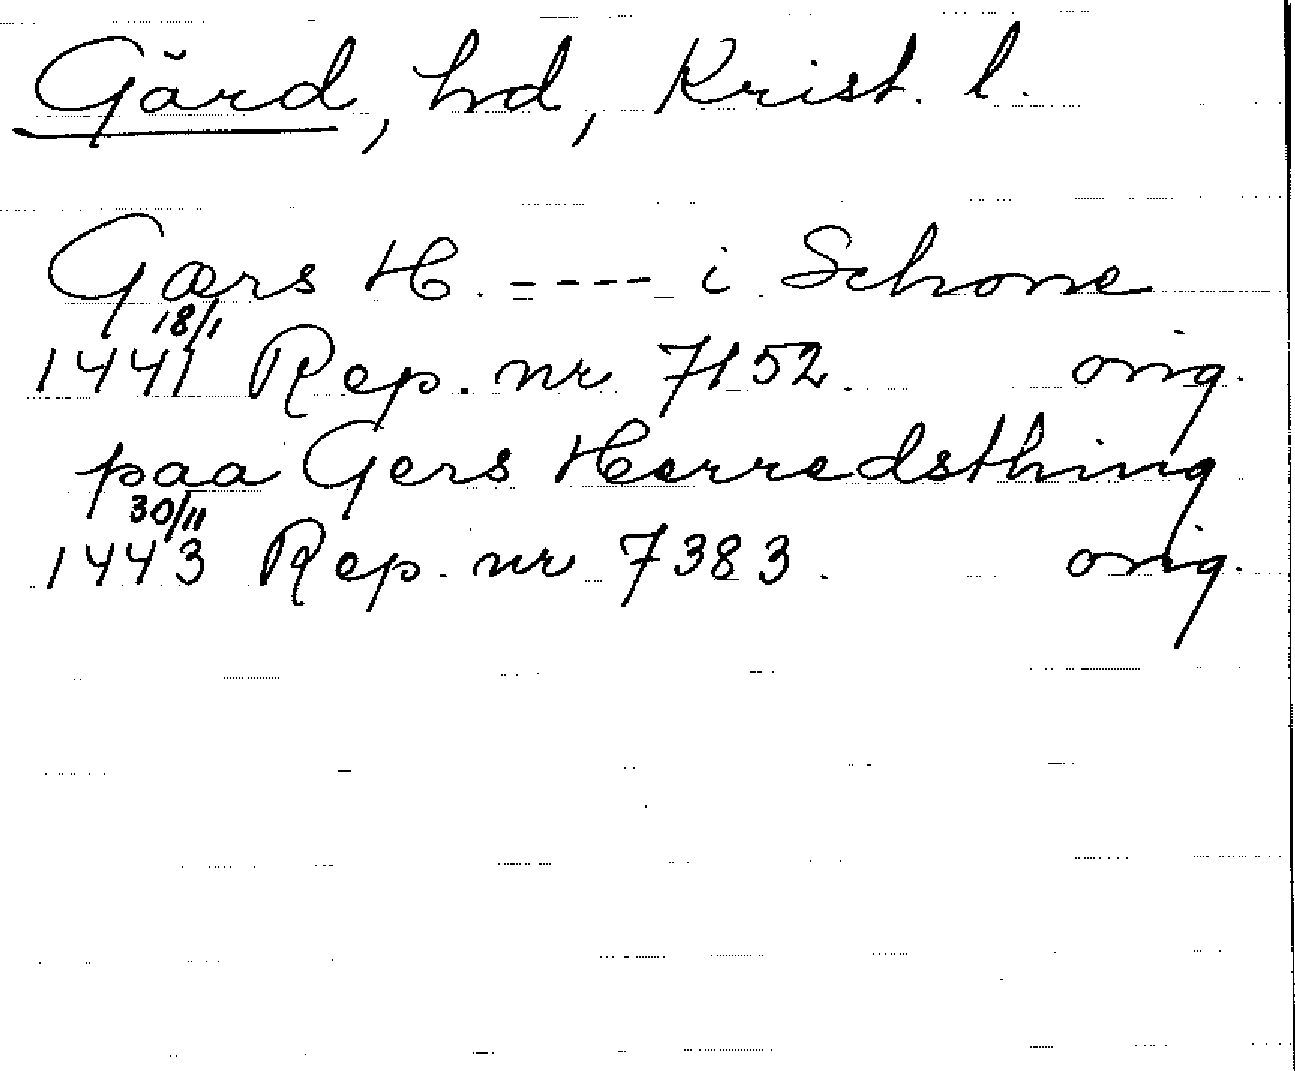 Gärd, hd, Krist. l.
Gærs H. ---- i Schone
18/1
1441 Rep. nr 7152. orig.
paa Gers Herredsthing
30/11
1443 Rep. nr 7383. orig.